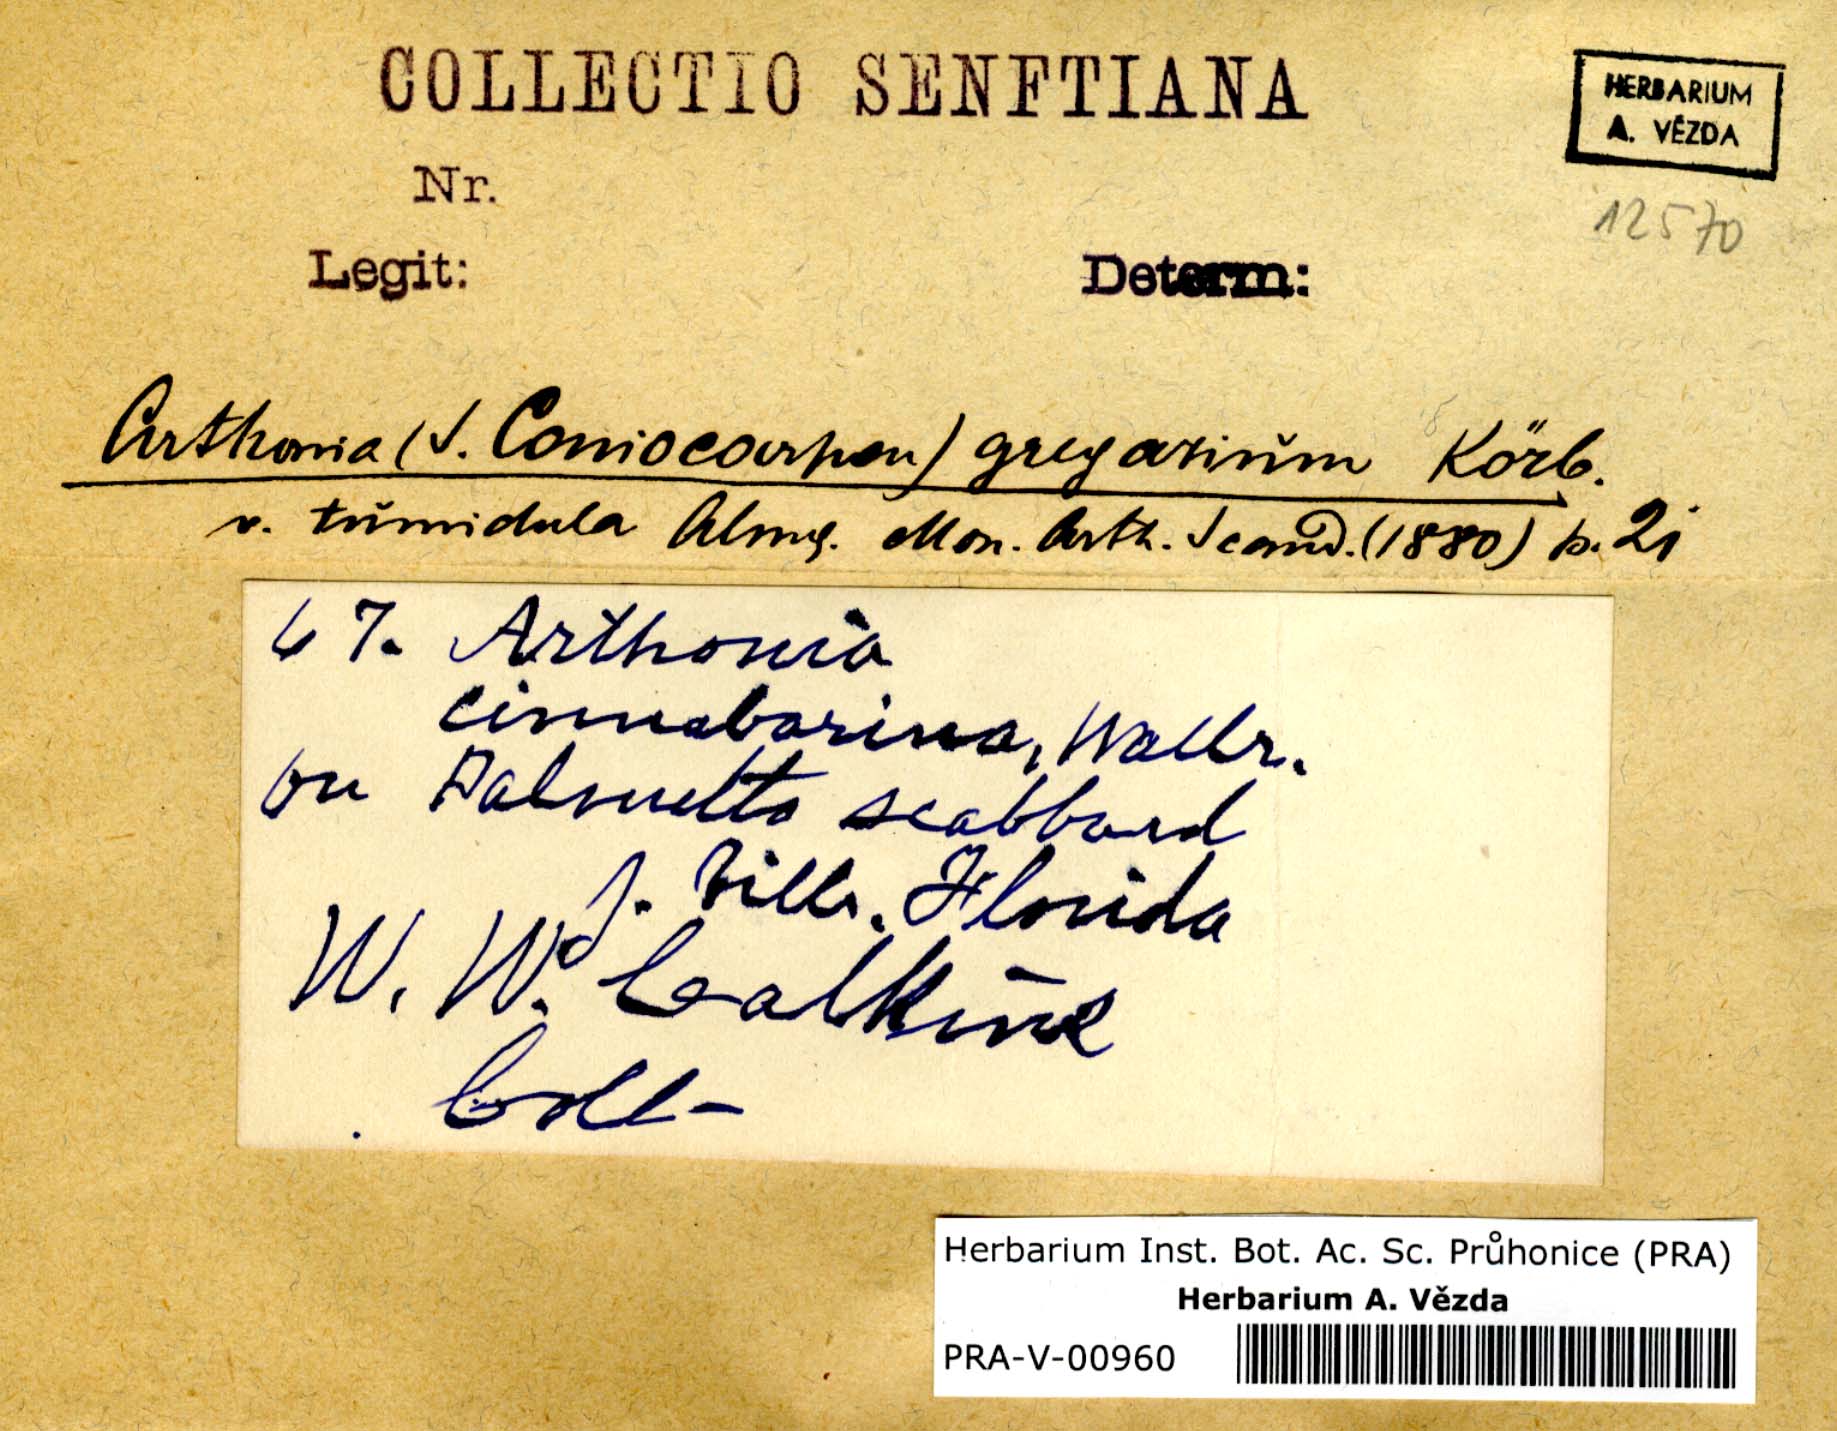 COLLECTIO SENFTIANA
HERBARIUM
A. VĚZDA
Nr.
12570
Legit: Determ:
Arthonia (S. Coniocarpon) gregariŭm Körb.
v. tŭmidula Almq. Mon. Arth. Scand. (1880) p. 21
67. Arthonia
cinnabarina, Wallr.
on Palmetto scabbard
J. Florida
W. W. Calkins
Coll-
Herbarium Inst. Bot. Ac. Sc. Průhonice (PRA)
Herbarium A. Vězda
PRA-V-00960